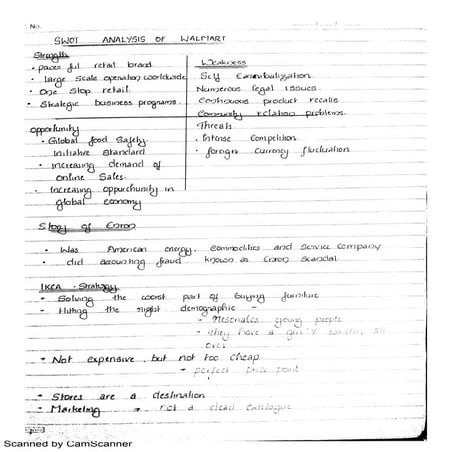 No.
SWOT ANALYSIS OF WALMART
Strength
• powerful retail brand
• large scale operation worldwide
• One stop retail.
• Strategic business programs.
Weakness
Self Cannibalization
Numerous legal issues.
Continuous product recalls
Community relation problems.
opportunity
• Global food Safety
Initiative Standard
• increasing demand of
online Sales.
• Increasing oppurchunity in
global economy
Threats
• Intense Competition.
• foreign Currency fluctuation
Story of Enron
• Was American energy, commodities and Service Company
• did accounting fraud known as Enron Scandal.
IKEA - Strategy
- Solving the worst part of buying furniture
- Hitting the right demographic -
- Resonates young people
- they have a all
over
- Not expensive but not too cheap
- perfect price point
- Stores are a destination
- Marketing → not a dead catalogue
Scanned by CamScanner